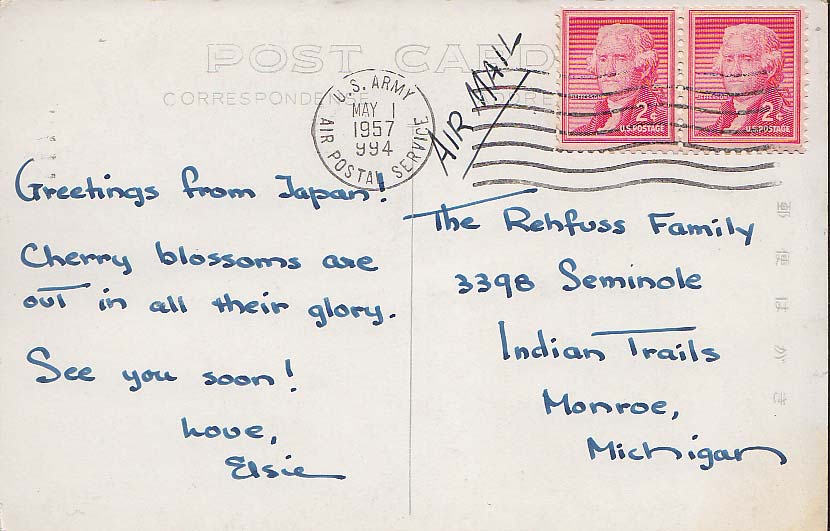 POST CARD
CORRESPONDENSE
U.S. ARMY
AIR POSTAL SERVICE
MAY 1
1957
994
AIR MAIL
JEFFERSON
2¢
U.S. POSTAGE
2¢
U.S. POSTAGE
Greetings from Japan!
Cherry blossoms are
out in all their glory.
See you soon!
Love,
Elsie
The Rehfuss Family
3398 Seminole
Indian Trails
Monroe,
Michigan
郵便はがき